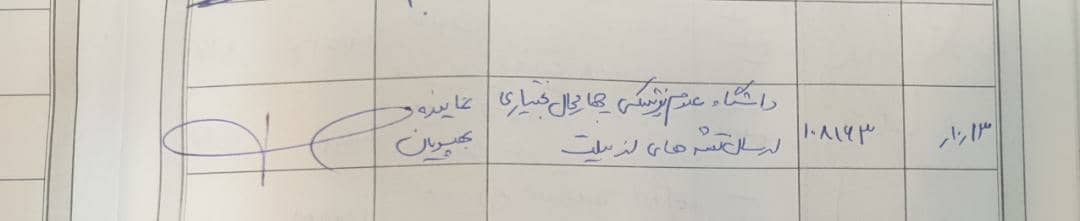 ۱۰/۱۳
۱۰۸۱۶۳
دانشگاه علوم پزشکی چهارمحال بختیاری
ارسال نقشه های از سایت
نماینده